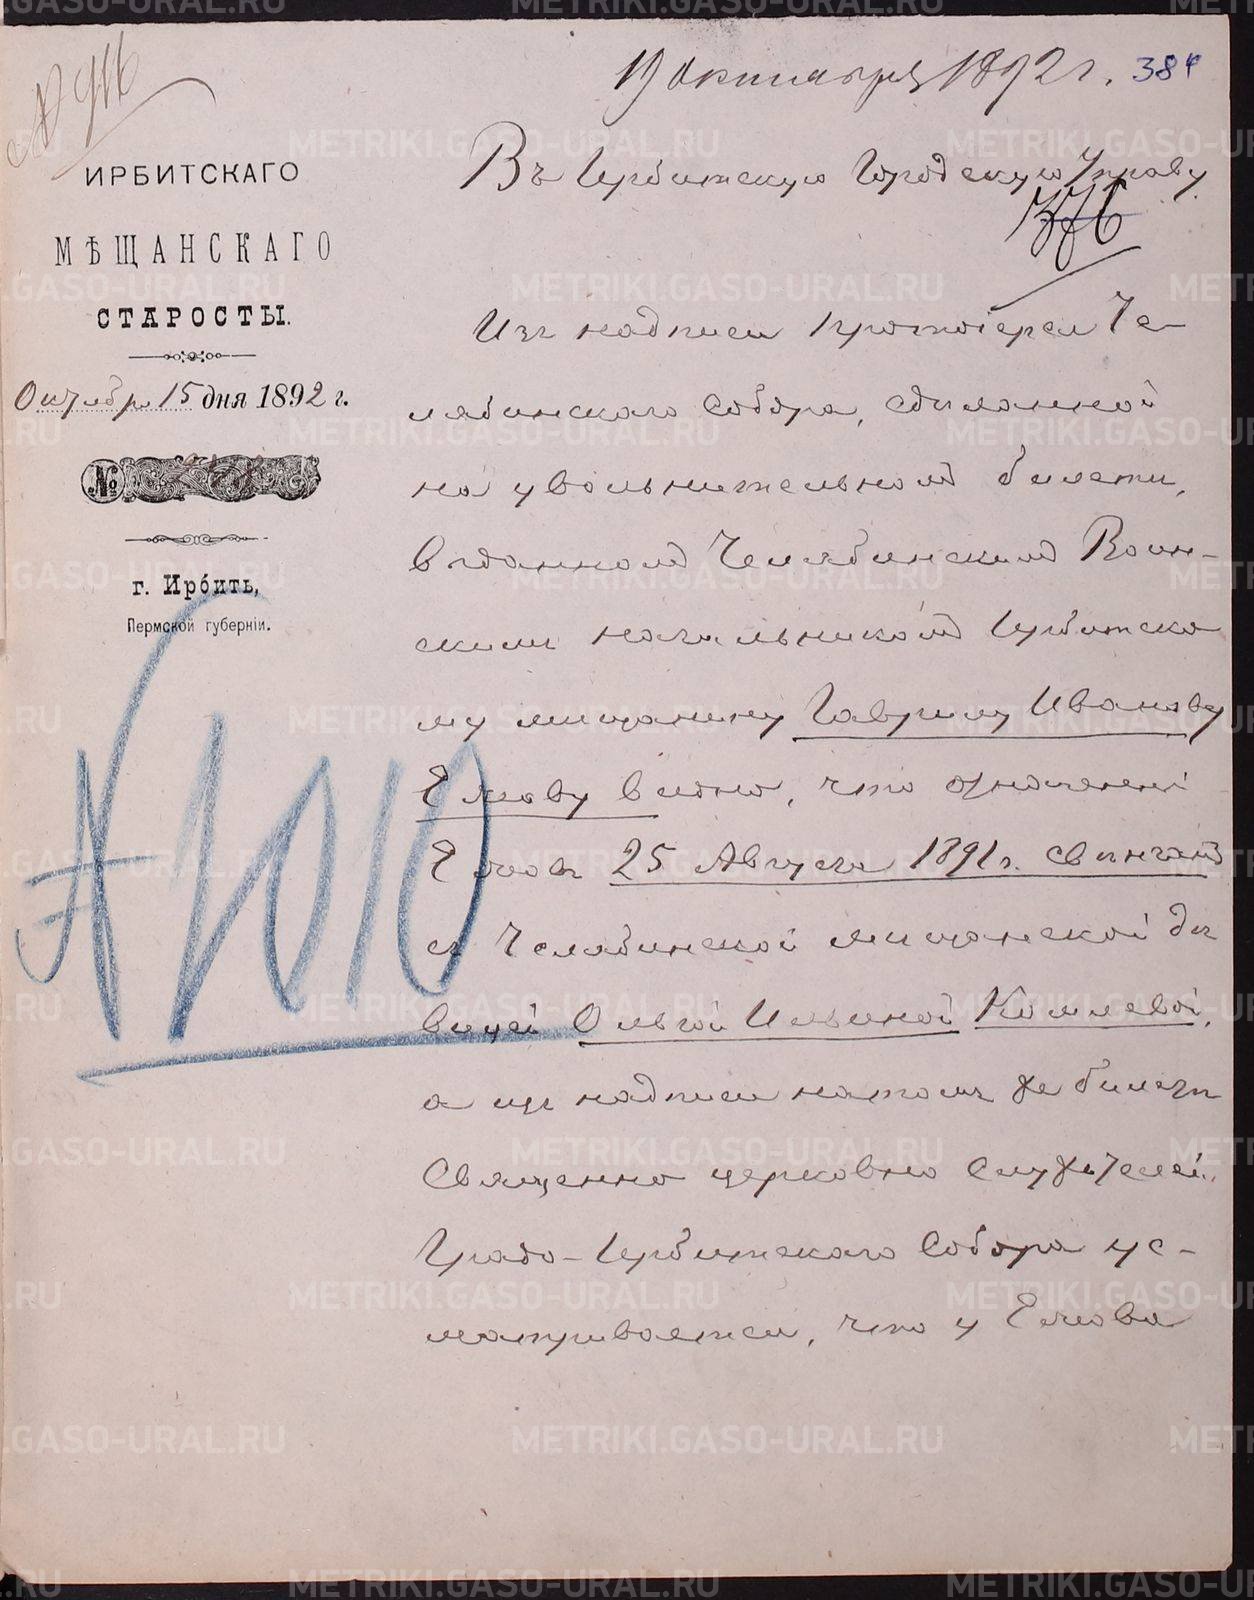 19 октября 1892 г. 384
№ 916
ИРБИТСКАГО
МѢЩАНСКАГО
СТАРОСТЫ.
Октября 15 дня 1892 г.
№
г. Ирбить,
Пермской губерніи.
№ 1010
Въ Ирбитскую Городскую Управу
376
Изъ надписи Протоіерея Че-
лябинскаго Собора, сдѣланной
на увольнительномъ билетѣ,
выданномъ Челябинскимъ Воин-
скимъ начальникомъ Ирбитско
му мѣщанину Гаврилу Иванову
Ежову видно, что означенный
Ежовъ 25 Августа 1891 г. свѣнчанъ
съ Челябинской мѣщанской дѣ
вицей Ольгой Ильиной
а изъ надписи на томъ же билетѣ
Священно церковно служителей
Градо-Ирбитскаго Собора ус-
матривается, что у Ежова
METRIKI.GASO-URAL.RU